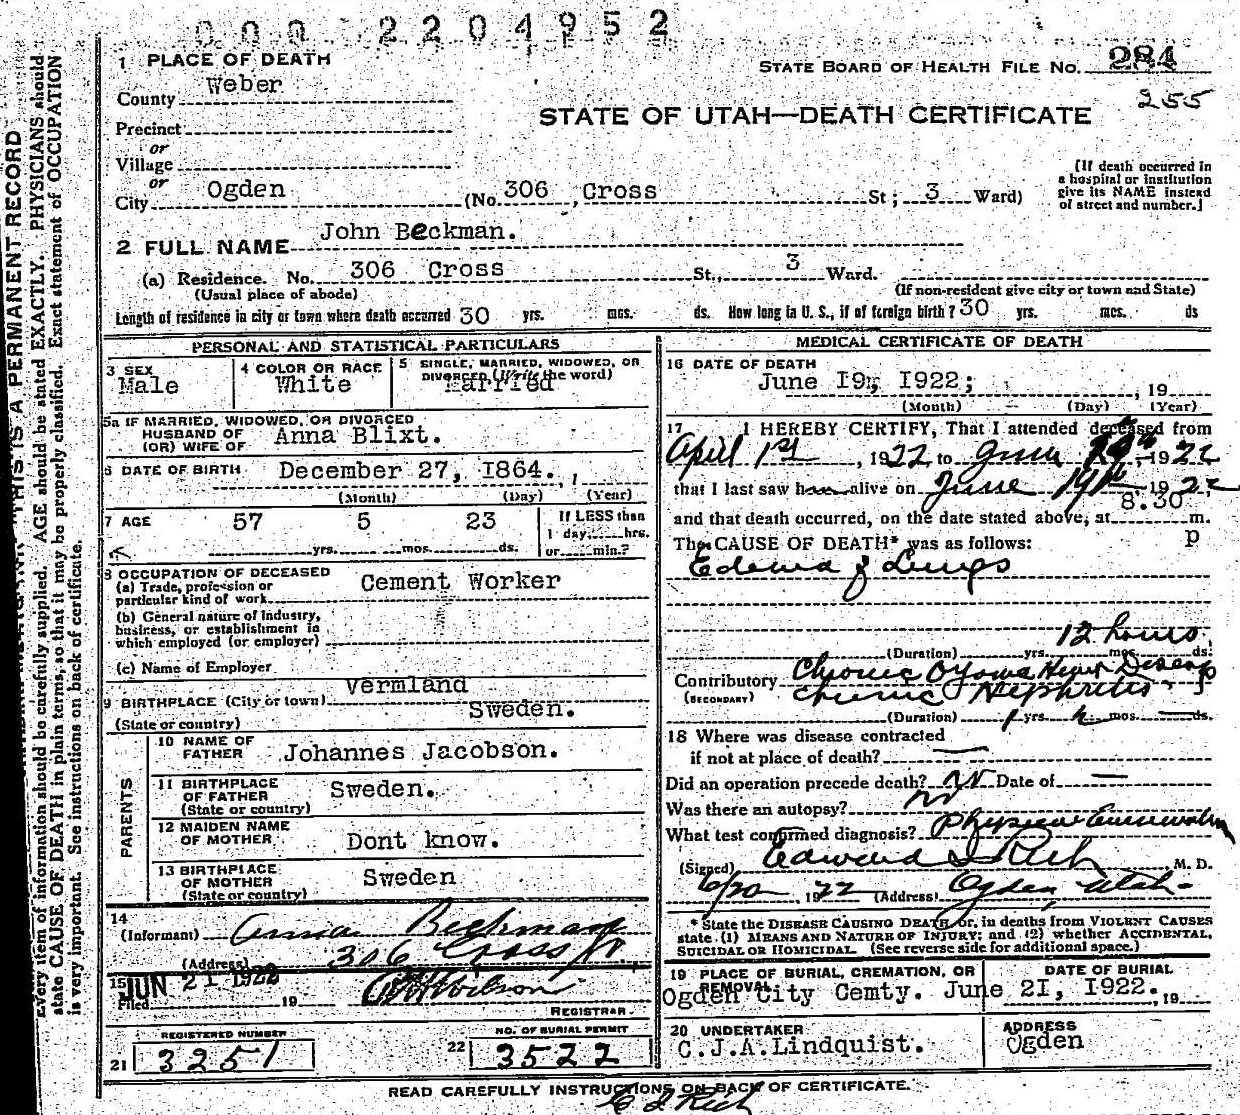 000 2204952
1 PLACE OF DEATH
STATE BOARD OF HEALTH FILE No. 284
255
County Weber
STATE OF UTAH—DEATH CERTIFICATE
Precinct
or
Village
or
City Ogden (No. 306, Cross St; 3 Ward)
[If death occurred in
a hospital or institution
give its NAME instead
of street and number.]
2 FULL NAME John Beckman.
(a) Residence. No. 306 Cross St., 3 Ward.
(Usual place of abode) (If non-resident give city or town and State)
Length of residence in city or town where death occurred 30 yrs. mos. ds. How long in U. S., if of foreign birth? 30 yrs. mos. ds
PERSONAL AND STATISTICAL PARTICULARS
3 SEX
Male
4 COLOR OR RACE
White
5 SINGLE, MARRIED, WIDOWED, OR
DIVORCED (Write the word)
Married
5a IF MARRIED, WIDOWED, OR DIVORCED
HUSBAND OF
(OR) WIFE OF Anna Blixt.
6 DATE OF BIRTH December 27, I864.
(Month) (Day) (Year)
7 AGE 57 yrs. 5 mos. 23 ds.
If LESS than
1 day, hrs.
or min.?
8 OCCUPATION OF DECEASED
(a) Trade, profession or
particular kind of work Cement Worker
(b) General nature of Industry,
business, or establishment in
which employed (or employer)
(c) Name of Employer
9 BIRTHPLACE (City or town) Vermland
(State or country) Sweden.
PARENTS
10 NAME OF
FATHER Johannes Jacobson.
11 BIRTHPLACE
OF FATHER Sweden.
(State or country)
12 MAIDEN NAME
OF MOTHER Dont know.
13 BIRTHPLACE
OF MOTHER Sweden
(State or country)
14
(Informant) Anna Beckman
(Address) 306 Cross St.
15 JUN 21 1922
Filed 19 Wilson
REGISTRAR
REGISTERED NUMBER
21 3251
NO. OF BURIAL PERMIT
22 3522
MEDICAL CERTIFICATE OF DEATH
16 DATE OF DEATH
June I9, I922; , 19
(Month) (Day) (Year)
17 I HEREBY CERTIFY, That I attended deceased from
April 1st, 1922 to June 19th, 1922
that I last saw him alive on June 19th 1922
and that death occurred, on the date stated above, at 8.30 m.
p
The CAUSE OF DEATH* was as follows:
Edema of Lungs
12 hours
(Duration) yrs. mos. ds.
Contributory Chronic Heart Disease
(SECONDARY) Chronic Nephritis
(Duration) yrs. mos. ds.
18 Where was disease contracted
if not at place of death?
Did an operation precede death? No Date of —
Was there an autopsy? No
What test confirmed diagnosis? Physical Examination
(Signed) Edward I Rich M. D.
6/20, 1922 (Address) Ogden, Utah
* State the DISEASE CAUSING DEATH, or, in deaths from VIOLENT CAUSES
state (1) MEANS AND NATURE OF INJURY; and (2) whether ACCIDENTAL,
SUICIDAL OR HOMICIDAL. (See reverse side for additional space.)
19 PLACE OF BURIAL, CREMATION, OR
REMOVAL
Ogden City Cemty.
DATE OF BURIAL
June 2I, I922. , 19
20 UNDERTAKER
C.J.A.Lindquist.
ADDRESS
Ogden
READ CAREFULLY INSTRUCTIONS ON BACK OF CERTIFICATE.
E I Rich
THIS IS A PERMANENT RECORD
Every item of information should be carefully supplied. AGE should be stated EXACTLY. PHYSICIANS should
state CAUSE OF DEATH in plain terms, so that it may be properly classified. Exact statement of OCCUPATION
is very important. See instructions on back of certificate.